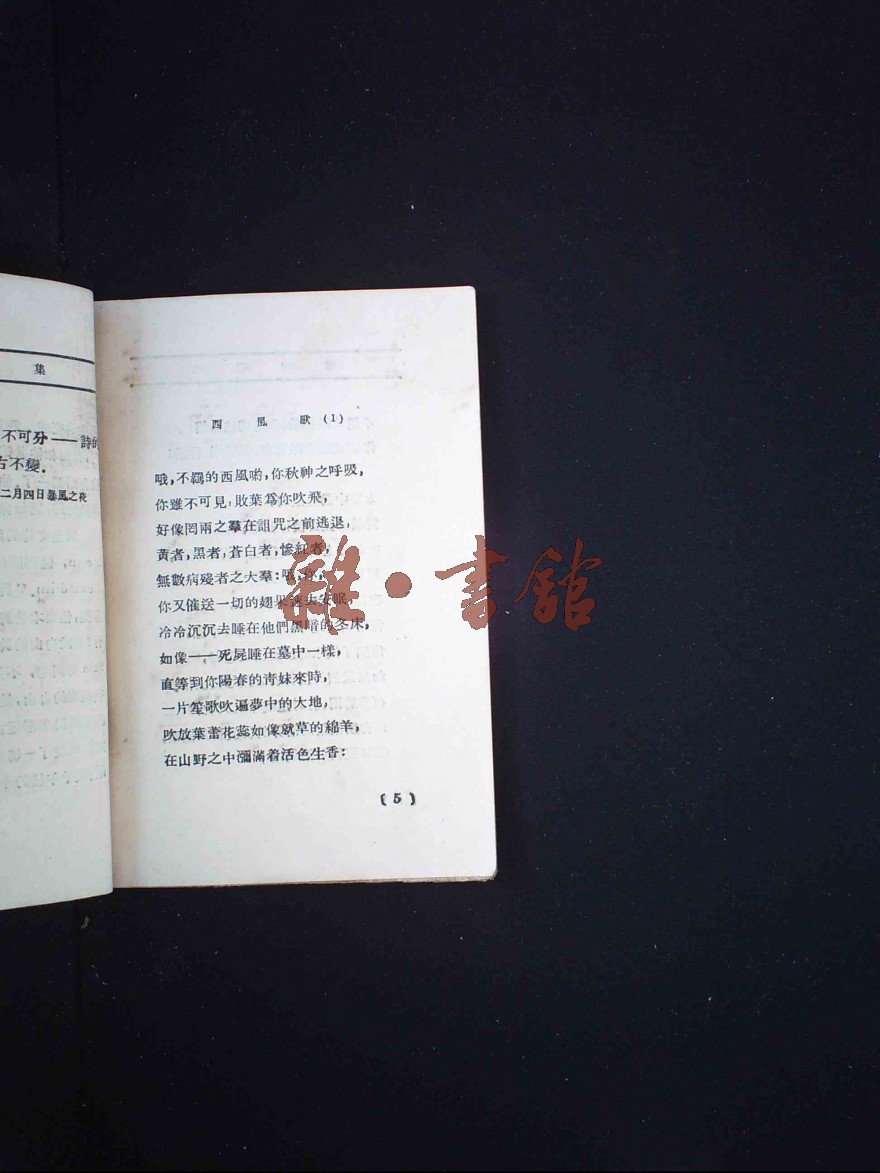 集
不可分——詩的
古不變.
二月四日暴風之夜
西風歌(1)
哦,不羈的西風喲,你秋神之呼吸,
你雖不可見,敗葉爲你吹飛,
好像罔兩之羣在詛咒之前逃退,
黃者,黑者,蒼白者,慘紅者,
無數病殘者之大羣:哦,你,
你又催送一切的翅果速去安眠,
冷冷沉沉去睡在他們黑暗的冬床,
如像——死屍睡在墓中一樣,
直等到你陽春的青妹來時,
一片笙歌吹遍夢中的大地,
吹放葉蕾花蕊如像就草的綿羊,
在山野之中彌滿着活色生香:
(5)
雜·書館